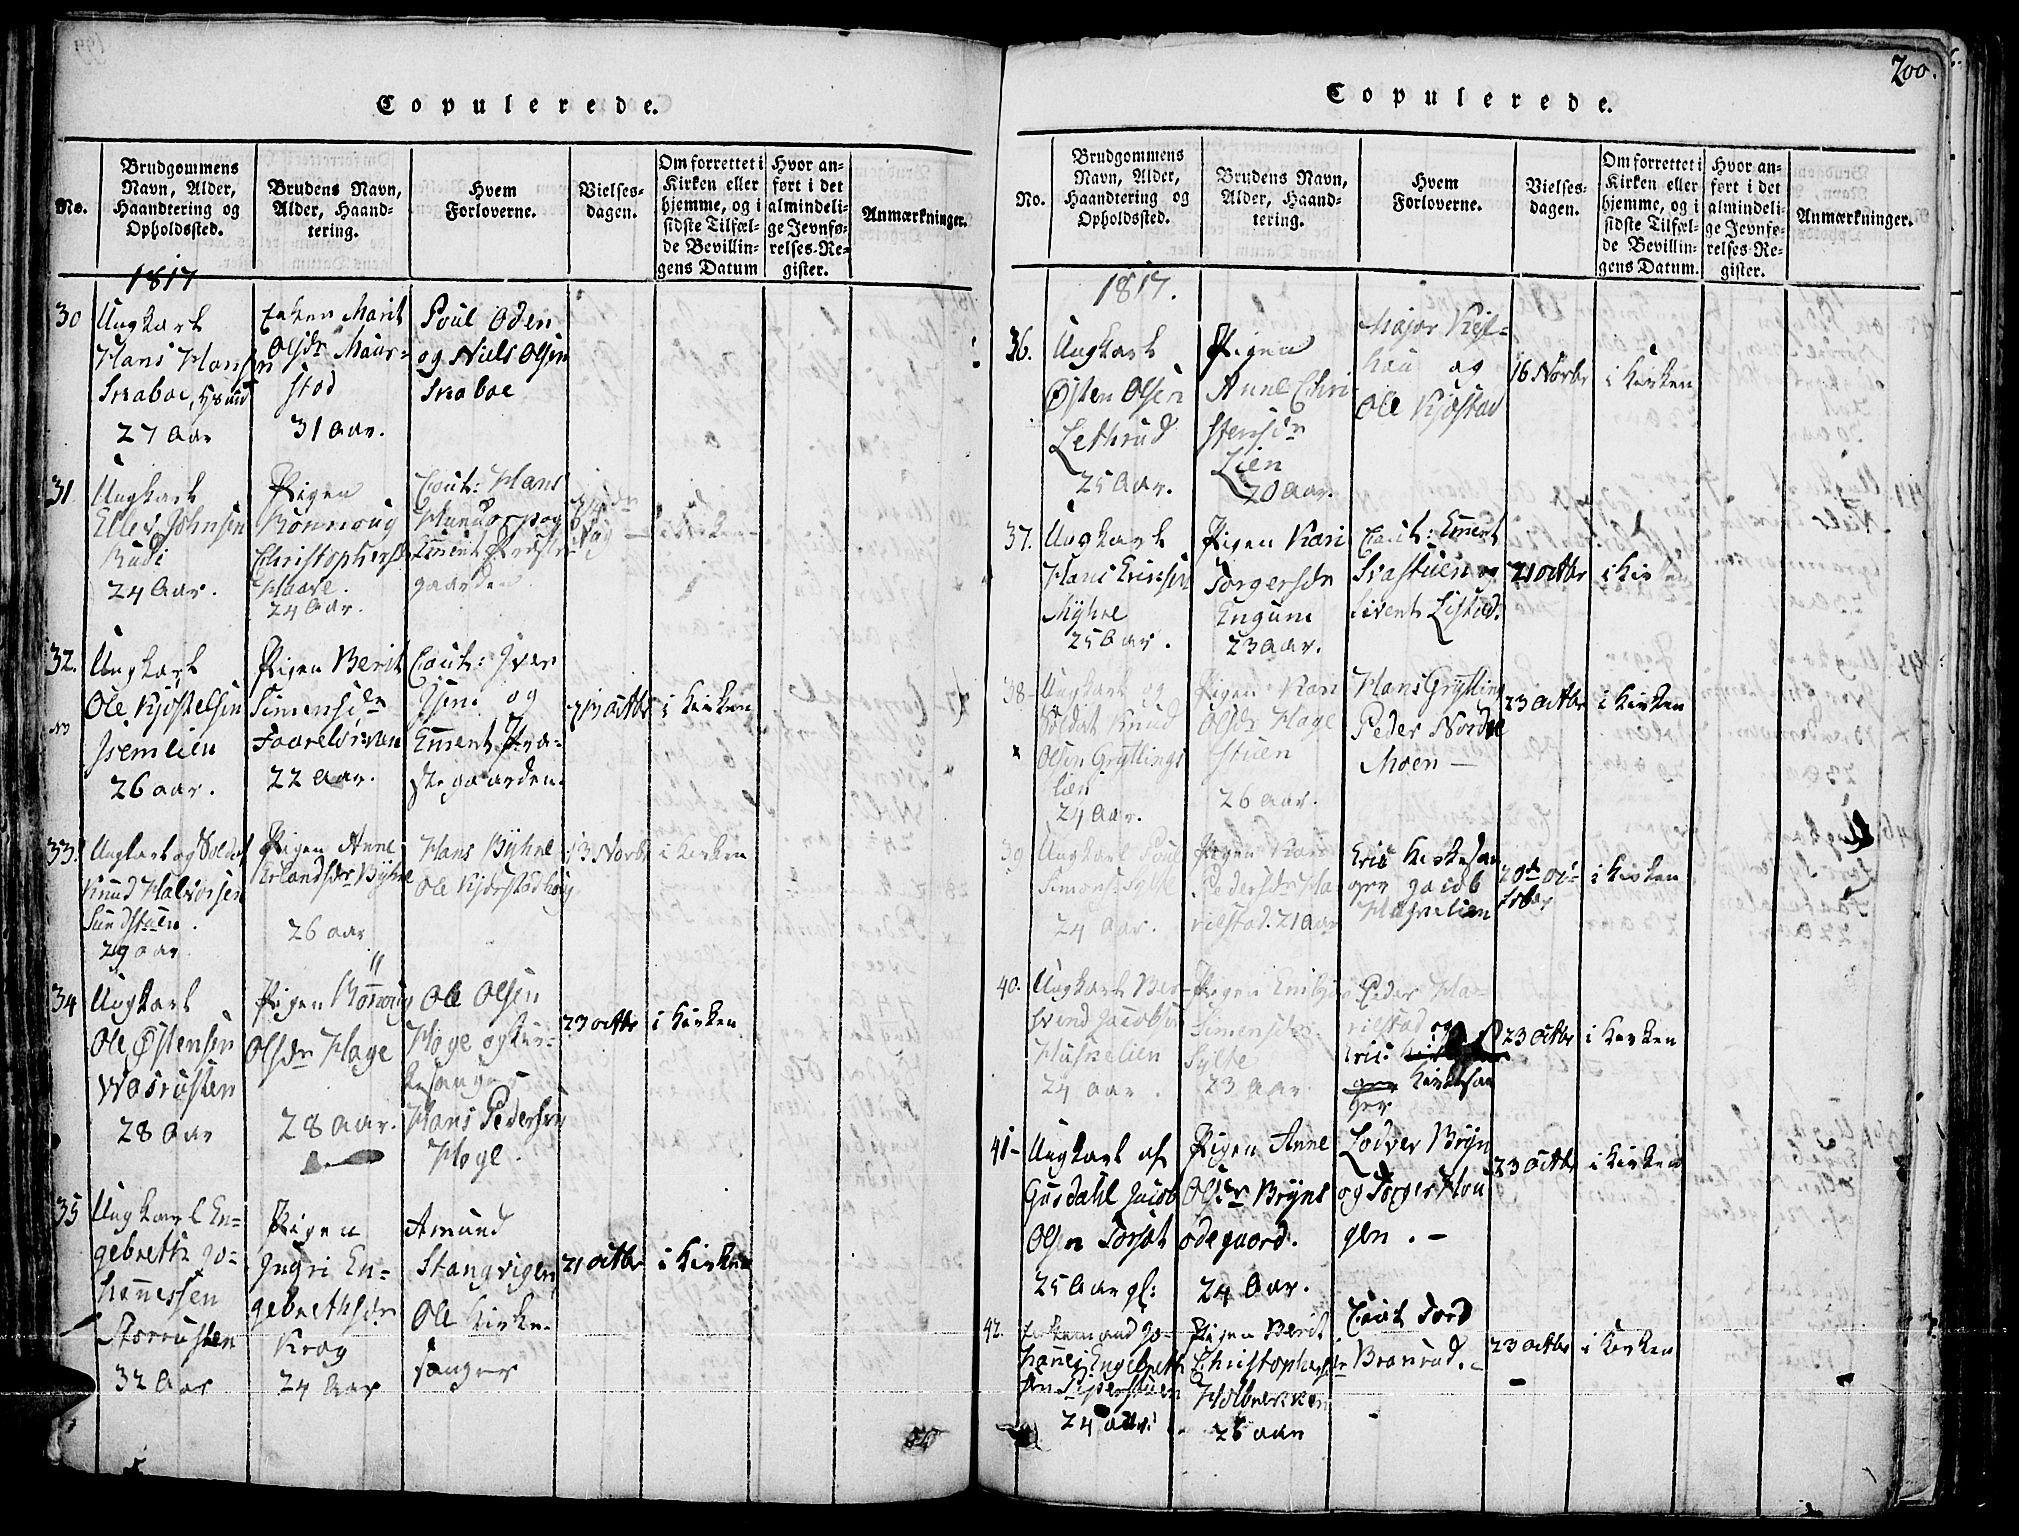 Copulerede.
No.
Brudgommens
Navn, Alder,
Haandtering og
Opholdssted.
Brudens Navn,
Alder, Haand-
tering.
Hvem
Forloverne.
Vielses-
dagen.
Om forrettet i
Kirken eller
hjemme, og i
sidste Tilfæl-
de Bevillin-
gens Datum
Hvor an-
ført i det
almindeli-
ge Jevnfø-
relses-Re-
gister.
Anmærkninger.
1817
30
Ungkarl
Hans Hansen
27 Aar
Enken Marit
Olsdr
stad
31 Aar.
Poul Oden
og Niels Olsen
31
Ungkarl
Johnsen
Rudi
24 Aar.
Pigen
Rønnoug
Christophersdr
24 Aar.
Caut: Hans
gaarden
32.
Ungkarl
Ole Kjøstelsen
26 aar.
Pigen Berit
Simensdr
22 Aar.
Caut: Iver
og
Præ-
stegaarden.
octbr
i Kirken
33.
Ungkarl og Soldat
Knud Halvorsen
Sundstuen.
29 aar
Pigen Anne
Erlandsdr Byhre
26 aar
Hans Byhre
Ole
13 Novbr
i Kirken
34
Ungkarl
Ole Østensen
28 Aar
Pigen Rønnoug
Olsdr Hage
28 Aar.
Ole Olsen
Hage og Kir-
kesanger
Hans Pedersen
Hage.
23 octbr
i Kirken
35
Ungkarl En-
gebreth Jo-
hannessen
Storrusten
32 Aar
Pigen
Ingri En-
gebrethsdr
Krog
24 Aar
Amund
Stangvigen
Ole Kirke-
sanger
21 octbr
i Kirken
200.
Copulerede.
No.
Brudgommens
Navn, Alder,
Haandtering og
Opholdssted.
Brudens Navn,
Alder, Haand-
tering.
Hvem
Forloverne.
Vielses-
dagen.
Om forrettet i
Kirken eller
hjemme, og i
sidste Tilfæl-
de Bevillin-
gens Datum.
Hvor an-
ført i det
almindeli-
ge Jevnfø-
relses-Re-
gister.
Anmærkninger.
1817.
36.
Ungkarl
Østen Olsen
Lethrud
25 Aar.
Pigen
Anne Chri
stensdr
Lien
20 Aar.
Major
og
Ole Kjøstad
16 Novbr
i Kirken
37.
Ungkarl
Hans Ericksen
Myhre
25 Aar.
Pigen Kari
Torgersdr
Engum
23 Aar.
Caut:
og
Sivert Listad.
21 octbr
i Kirken
38
Ungkarl og
Soldat Knud
Olsen Gryttings
lien
24 Aar.
Pigen Kari
Olsdr Hage
stuen
26 Aar.
Hans Grytting
Peder Nordre
Moen
23 octbr
i Kirken
39
Ungkarl Poul
Simons. Sylte
24 Aar.
Pigen Kari
Pedersdr Ha
rilstad. 21 Aar
Eric Kirkesan
ger Jacob
20de oc-
tober
i Kirken
40.
Ungkarl Ber-
svend Jacobsen
24 aar.
Pigen
Simensdr
Sylte
23 Aar
Peder Ha-
rilstad og
Eric
Kirkesan
ger
23 octbr
i Kirken
41
Ungkarl af
Gusdahl Jacob
Olsen Forsøt
25 Aar gl:
Pigen Anne
Olsdr Bryns
ødegaard.
24 Aar.
Lodver Bryn
og Torger Hou
gen.
23 octbr
i Kirken
42.
Enkemand Jo-
hannes Engebreth
sen
24 aar:
Pigen Berit
Christophersdr
26 aar
Caut Tord
Branrud.
23 octbr
i Kirken